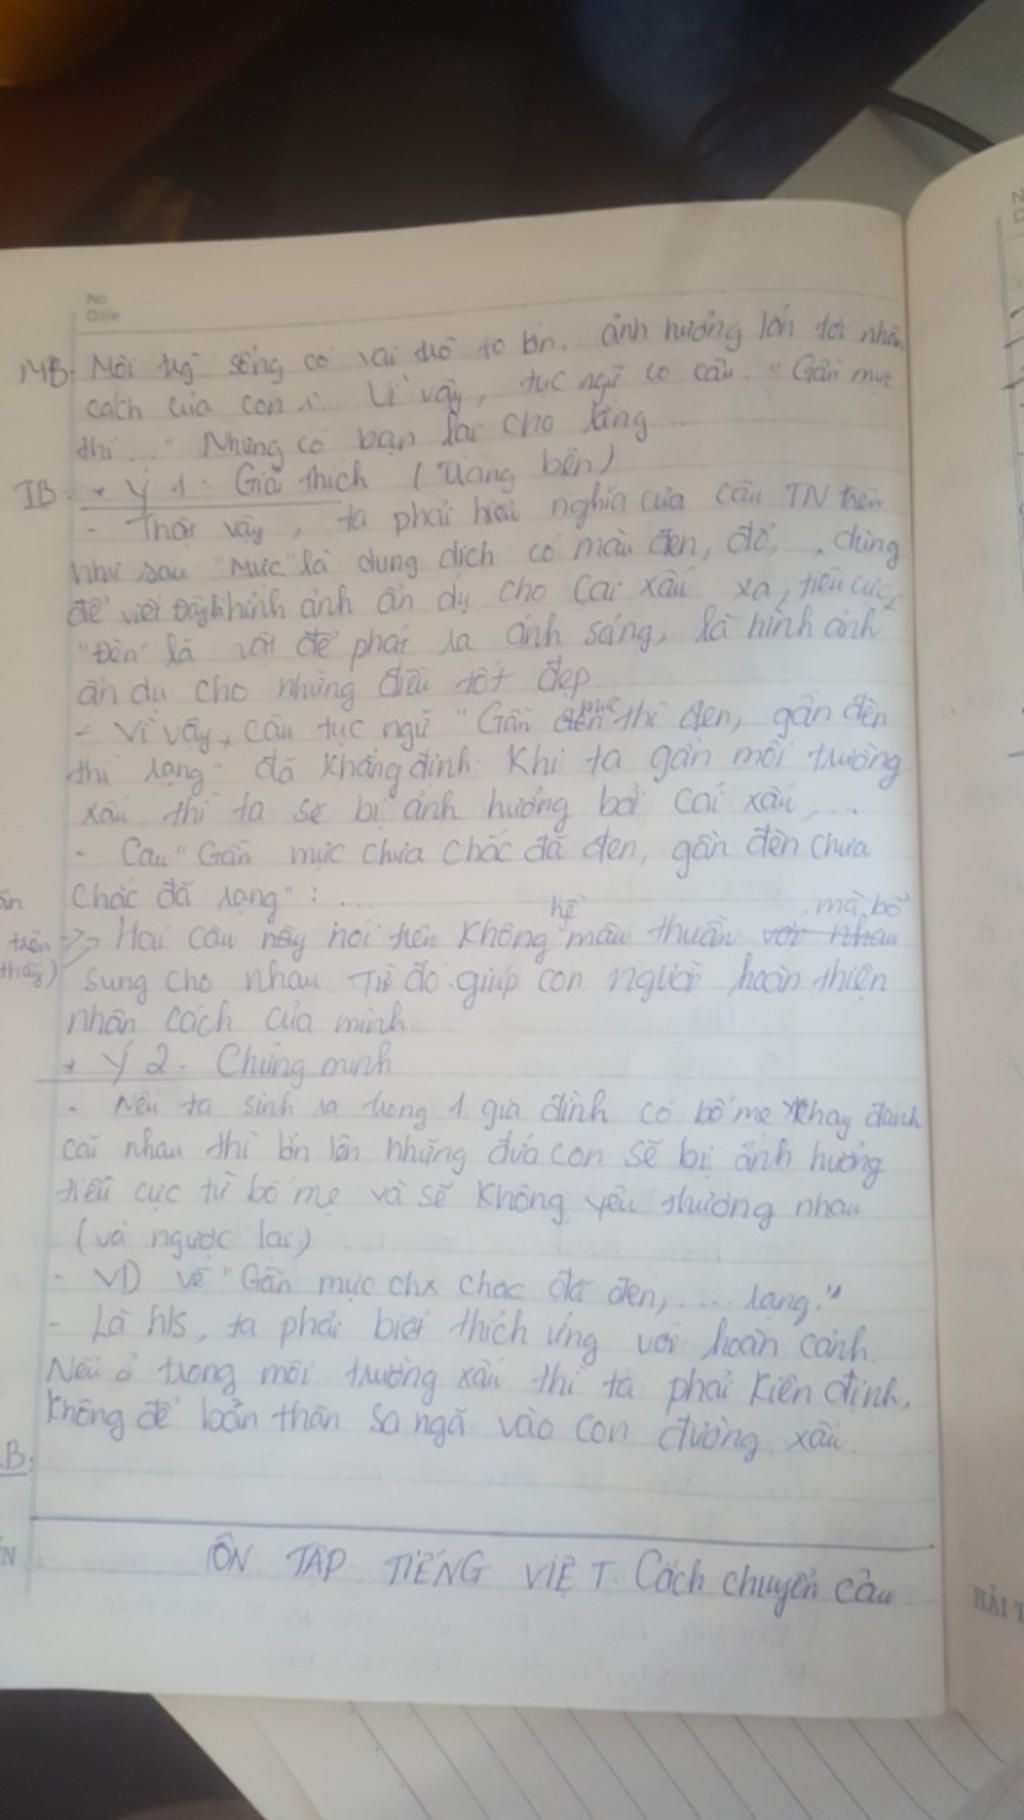 No
Date
MB: Môi trg sống có vai trò to lớn, ảnh hưởng lớn tới nhân
cách của con Vì vậy, tục ngữ có câu: "Gần mực
thì ..." Nhưng có bạn lại cho rằng ...
TB: * Ý 1: Giải thích (trang bên)
- Thật vậy, ta phải hiểu nghĩa của câu TN trên
như sau "Mực" là dung dịch có màu đen, đỏ, dùng
để viết hình ảnh ẩn dụ cho cái xấu xa, tiêu cực,
"Đèn" là vật để phát ra ánh sáng, là hình ảnh
ẩn dụ cho những điều tốt đẹp
- Vì vậy, câu tục ngữ "Gần mực thì đen, gần đèn
thì rạng" đã khẳng định: Khi ta gần môi trường
xấu thì ta sẽ bị ảnh hưởng bởi cái xấu, ...
- Câu "Gần mực chưa chắc đã đen, gần đèn chưa
chắc đã rạng": ...
=> Hai câu này nói trên không hề mâu thuẫn với nhau mà bổ
trên
thầy)
sung cho nhau. Từ đó giúp con người hoàn thiện
nhân cách của mình.
* Ý 2: Chứng minh
- Nếu ta sinh ra trong 1 gia đình có bố mẹ hay đánh
cãi nhau thì lớn lên những đứa con sẽ bị ảnh hưởng
tiêu cực từ bố mẹ và sẽ không yêu thương nhau
(và ngược lại)
- VD về "Gần mực chx chắc đã đen, ... rạng."
- Là h/s, ta phải biết thích ứng với hoàn cảnh.
Nếu ở trong môi trường xấu thì ta phải kiên định,
không để bản thân sa ngã vào con đường xấu.
B:
ÔN TẬP TIẾNG VIỆT: Cách chuyển câu